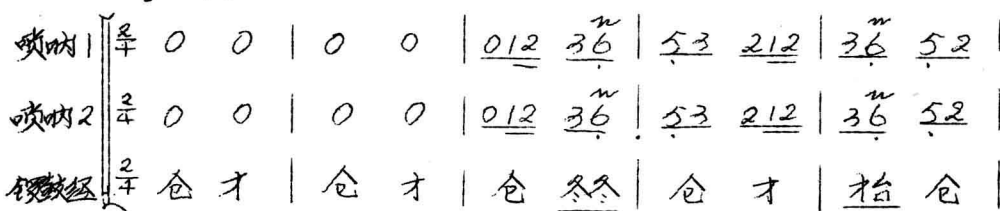 唢呐1 2/4 0 0 | 0 0 | 012 36 | 53 212 | 36 52 |
唢呐2 2/4 0 0 | 0 0 | 012 36 | 53 212 | 36 52 |
锣鼓经 2/4 仓 才 | 仓 才 | 仓 冬冬 | 仓 才 | 才台 仓 |